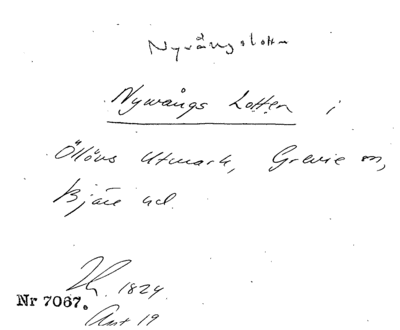 Nyvångslotten
Nywångs Lotten i
Öllövs Utmark, Grevie sn,
Bjäre hd.
1824.
Nr 7067.
Akt 19